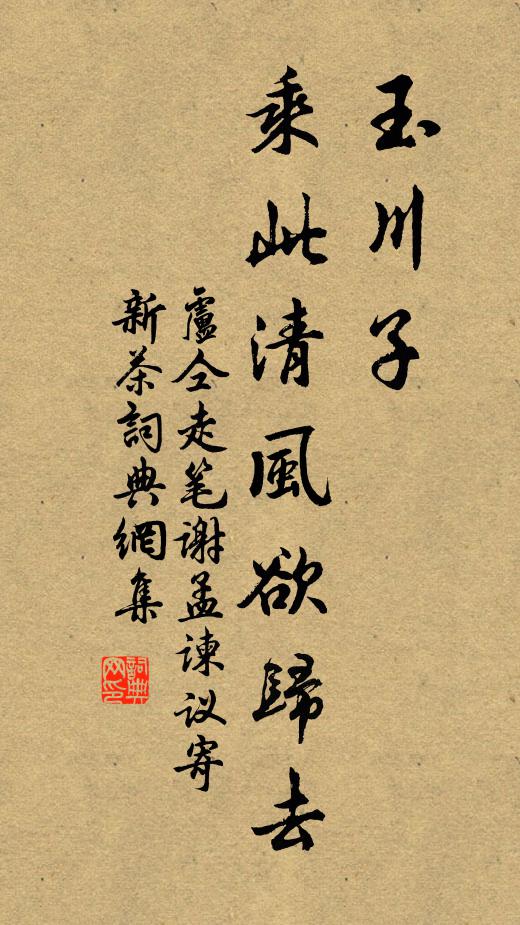 玉川子
乘此清風欲歸去
盧仝走笔謝孟諫议寄
新茶詞典網集
詞典
网印